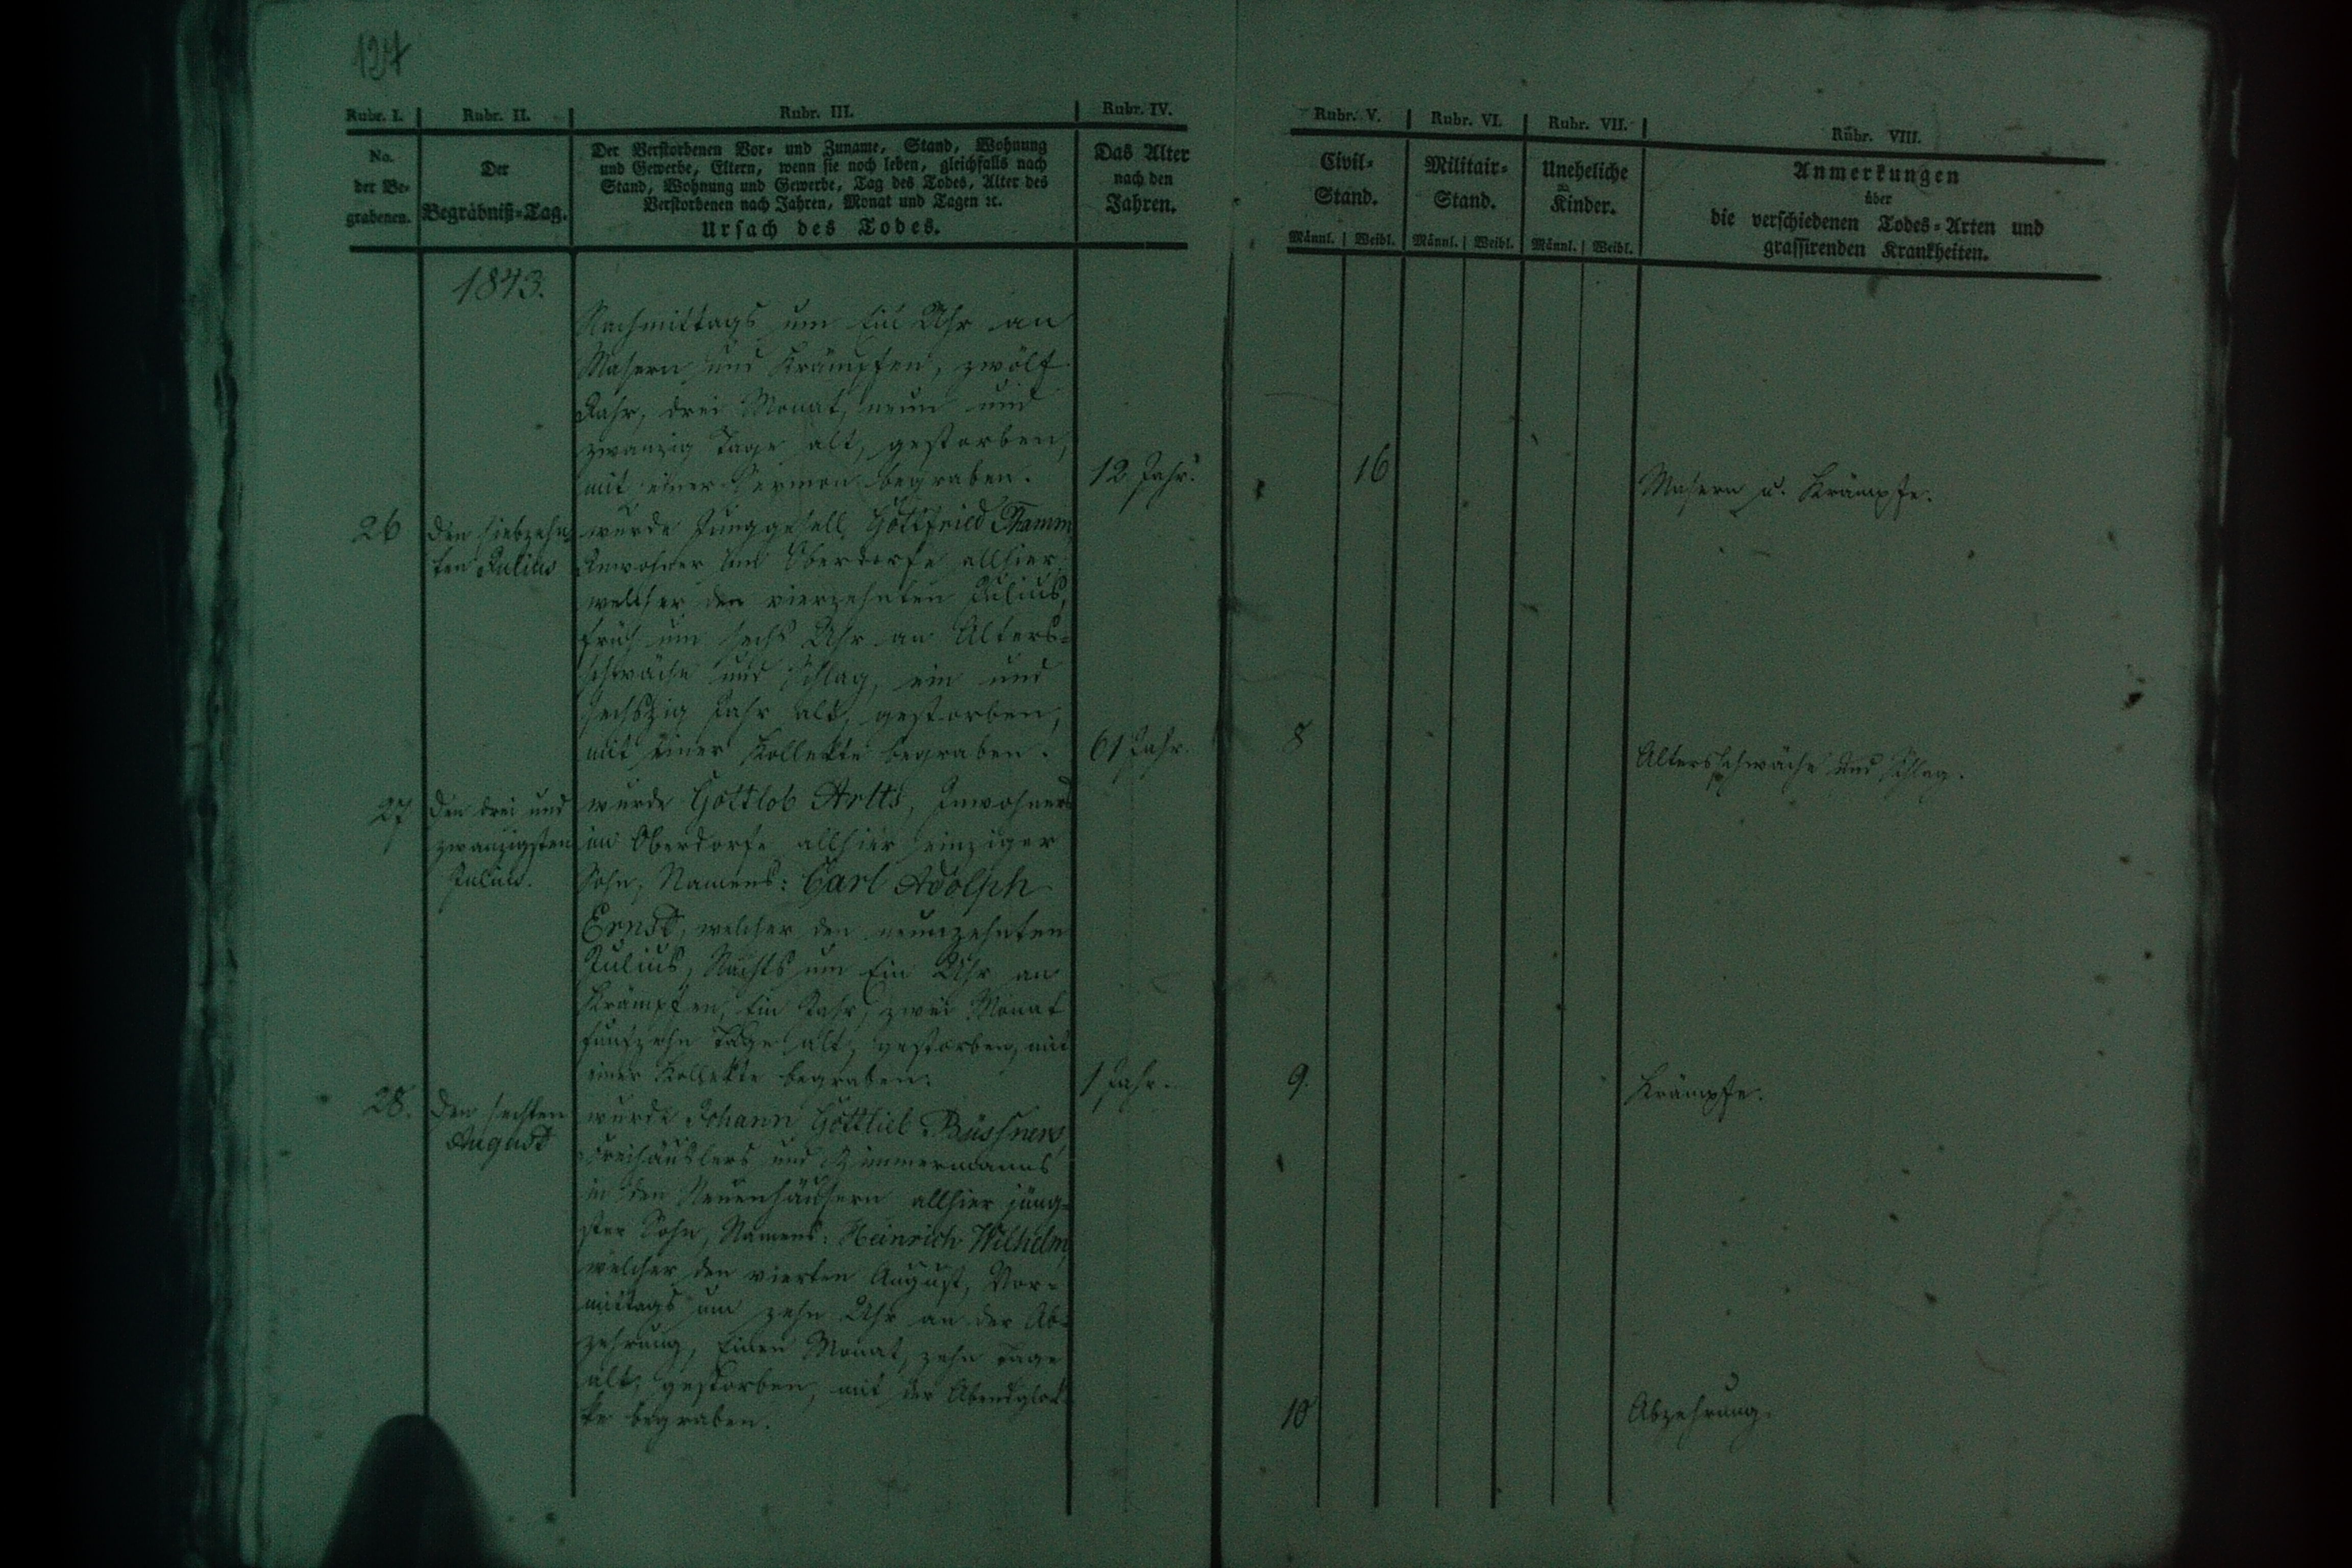 124
Rubr. I. Rubr. II. Rubr. III. Rubr. IV. Rubr. V. Rubr. VI. Rubr. VII. Rubr. VIII.
No.
der Be-
grabenen.
Der
Begräbniß-Tag.
Der Verstorbenen Vor- und Zuname, Stand, Wohnung
und Gewerbe, Eltern, wenn sie noch leben, gleichfalls nach
Stand, Wohnung und Gewerbe, Tag des Todes, Alter des
Verstorbenen nach Jahren, Monat und Tagen ꝛc.
Ursach des Todes.
Das Alter
nach den
Jahren.
Civil-
Stand.
Männl. Weibl.
Militair-
Stand.
Männl. Weibl.
Uneheliche
Kinder.
Männl. Weibl.
Anmerkungen
über
die verschiedenen Todes-Arten und
grassirenden Krankheiten.
1843.
Nachmittags um Ein Uhr an
Masern und Krämpfen, zwölf
Jahr, drei Monat, neun und
zwanzig Tage alt, gestorben,
mit einer Sermon begraben.
12 Jahr.
16
Masern u. Krämpfe.
26
den siebzehn-
ten Julius
wurde Junggesell Gottfried
Inwohner im Oberdorfe allhier,
welcher den vierzehnten Julius,
früh um sechs Uhr an Alters-
schwäche und Schlag, ein und
sechszig Jahr alt, gestorben,
mit einer Kollekte begraben.
61 Jahr.
8
Altersschwäche und Schlag.
27
den drei und
zwanzigsten
Julius.
wurde Gottlob Artts, Inwohners
im Oberdorfe allhier einziger
Sohn, Namens: Carl Adolph
Ernst, welcher den neunzehnten
Julius, Nachts um Ein Uhr an
Krämpfen, Ein Jahr, zwei Monat
funfzehn Tage alt, gestorben, mit
einer Kollekte begraben.
1 Jahr.
9.
Krämpfe.
28.
den sechsten
August
wurde Johann Gottlieb Büssners,
Freihäuslers und Zimmermanns
in den Neuenhäusern allhier jüng-
ster Sohn, Namens: Heinrich Wilhelm,
welcher den vierten August, Vor-
mittags um zehn Uhr an der Ab-
zehrung, Einen Monat, zehn Tage
alt, gestorben, mit der Abendglok-
ke begraben.
10
Abzehrung.